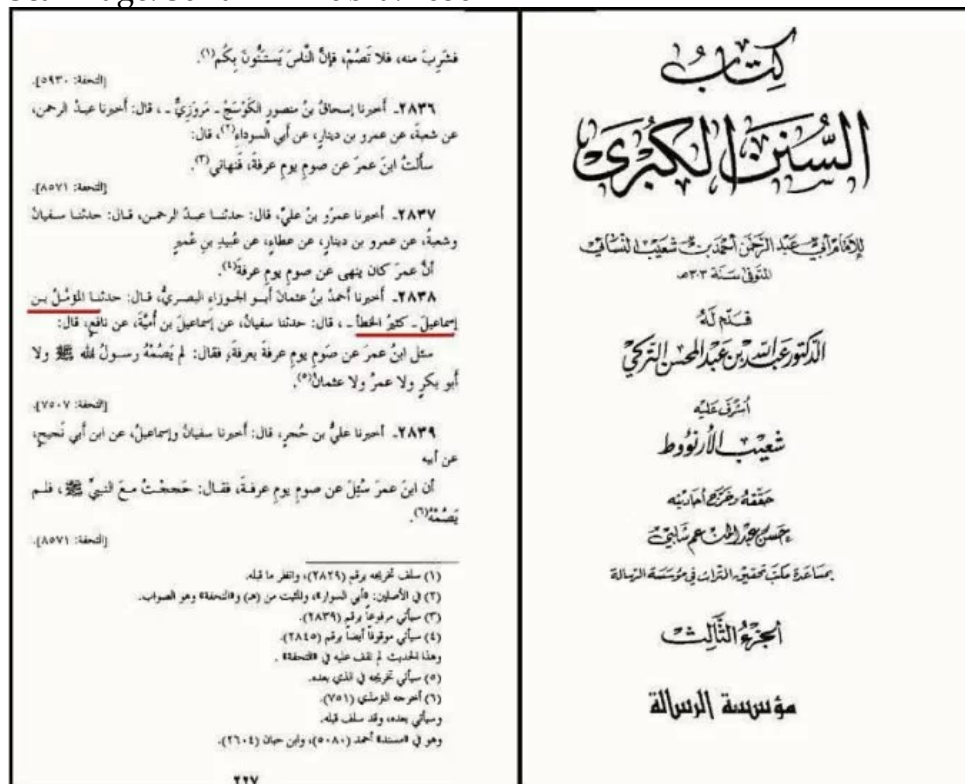 كتاب
السنن الكبرى
للإمام أبي عبد الرحمن أحمد بن شعيب النسائي
المتوفى سنة ٣٠٣هـ
قدم له
الدكتور عبد الله بن عبد المحسن التركي
أشرف عليه
شعيب الأرنؤوط
حققه وخرج أحاديثه
حسن عبد المنعم شلبي
بمساعدة مكتب تحقيق التراث في مؤسسة الرسالة
الجزء الثالث
مؤسسة الرسالة
فشَرِبَ منه، فلا تَصُمْ، فإنَّ النّاسَ يَستَنُّونَ بِكُم(١).
[التحفة: ٥٩٣٠].
٢٨٣٦ـ أخبرنا إسحاقُ بنُ منصورٍ الكَوْسَجُ ـ مَروَزِيٌّ ـ ، قال: أخبرنا عبدُ الرحمن،
عن شعبةَ، عن عمرو بن دينارٍ، عن أبي السوداءِ(٢)، قال:
سألتُ ابنَ عمرَ عن صومِ يومِ عرفةَ، فنهاني(٣).
[التحفة: ٨٥٧١].
٢٨٣٧ـ أخبرنا عمرُو بنُ عليٍّ، قال: حدثنا عبدُ الرحمن، قال: حدثنا سفيانُ
وشعبةُ، عن عمرو بن دينارٍ، عن عطاءٍ، عن عُبيدِ بنِ عُميرٍ
أنَّ عمرَ كان ينهى عن صومِ يومِ عرفةَ(٤).
٢٨٣٨ـ أخبرنا أحمدُ بنُ عثمانَ أبو الجوزاءِ البصريُّ، قال: حدثنا المؤمَّلُ بن
إسماعيلَ ـ كثيرُ الخطأ ـ ، قال: حدثنا سفيانُ، عن إسماعيلَ بن أُميَّةَ، عن نافعٍ، قال:
سئل ابنُ عمرَ عن صَومِ يومِ عرفةَ بعرفةَ، فقال: لم يَصُمْهُ رسولُ الله ﷺ ولا
أبو بكرٍ ولا عمرُ ولا عثمانُ(٥).
[التحفة: ٧٥٠٧].
٢٨٣٩ـ أخبرنا عليُّ بن حُجرٍ، قال: أخبرنا سفيانُ وإسماعيلُ، عن ابن أبي نَجيحٍ،
عن أبيه
أن ابنَ عمرَ سُئِلَ عن صومِ يومِ عرفةَ، فقال: حَججْتُ معَ النبيِّ ﷺ، فلم
يَصُمْهُ(٦).
[التحفة: ٨٥٧١].
(١) سلف تخريجه برقم (٢٨٢٩)، وانظر ما قبله.
(٢) في الأصلين: «أبي السوار»، والمثبت من (هـ) و«التحفة» وهو الصواب.
(٣) سيأتي مرفوعاً برقم (٢٨٣٩).
(٤) سيأتي موقوفاً أيضاً برقم (٢٨٤٥).
وهذا الحديث لم نقف عليه في «التحفة» .
(٥) سيأتي تخريجه في الذي بعده.
(٦) أخرجه الترمذي (٧٥١).
وسيأتي بعده، وقد سلف قبله.
وهو في «مسند» أحمد (٥٠٨٠)، وابن حبان (٣٦٠٤).
٢٢٧